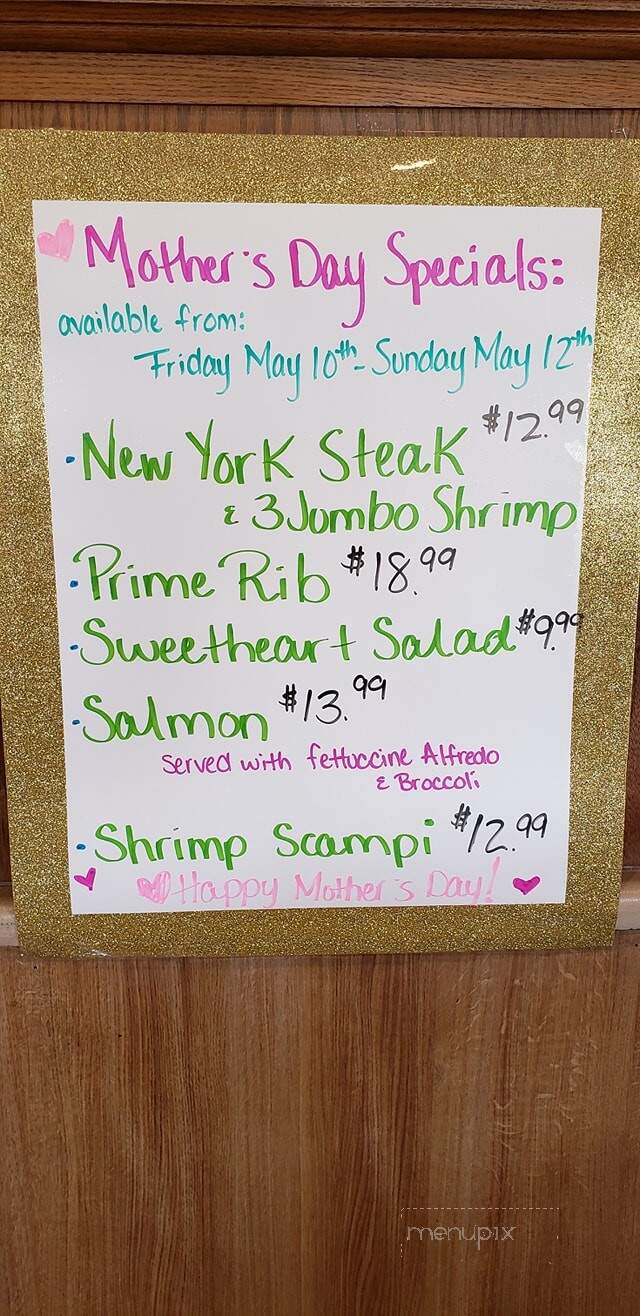 Mother's Day Specials:
available from:
Friday May 10th - Sunday May 12th
• New York Steak $12.99
& 3 Jumbo Shrimp
• Prime Rib $18.99
• Sweetheart Salad $9.99
• Salmon $13.99
Served with fettuccine Alfredo
& Broccoli
• Shrimp Scampi $12.99
Happy Mother's Day!
menupix